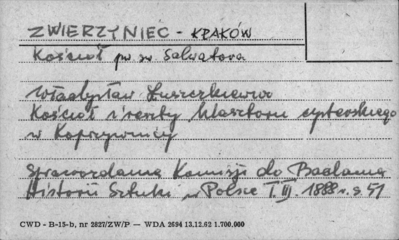 ZWIERZYNIEC - KRAKÓW
Kościół pw św Salvatora
Władysław Łuszczkiewicz
Kościół i reszty klasztoru cysterskiego
w Koprzywnicy
Sprawozdania Komisji do Badania
Historii Sztuki w Polsce T. III. 1888 r. s. 51
CWD - B-15-b, nr 2827/ZW/P — WDA 2694 13.12.62 1.700.000